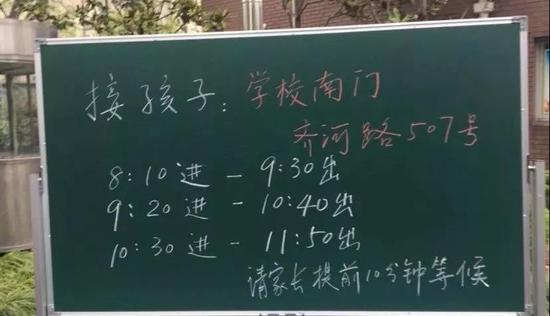 接孩子：学校南门
齐河路507号
8:10进 - 9:30出
9:20进 - 10:40出
10:30进 - 11:50出
请家长提前10分钟等候